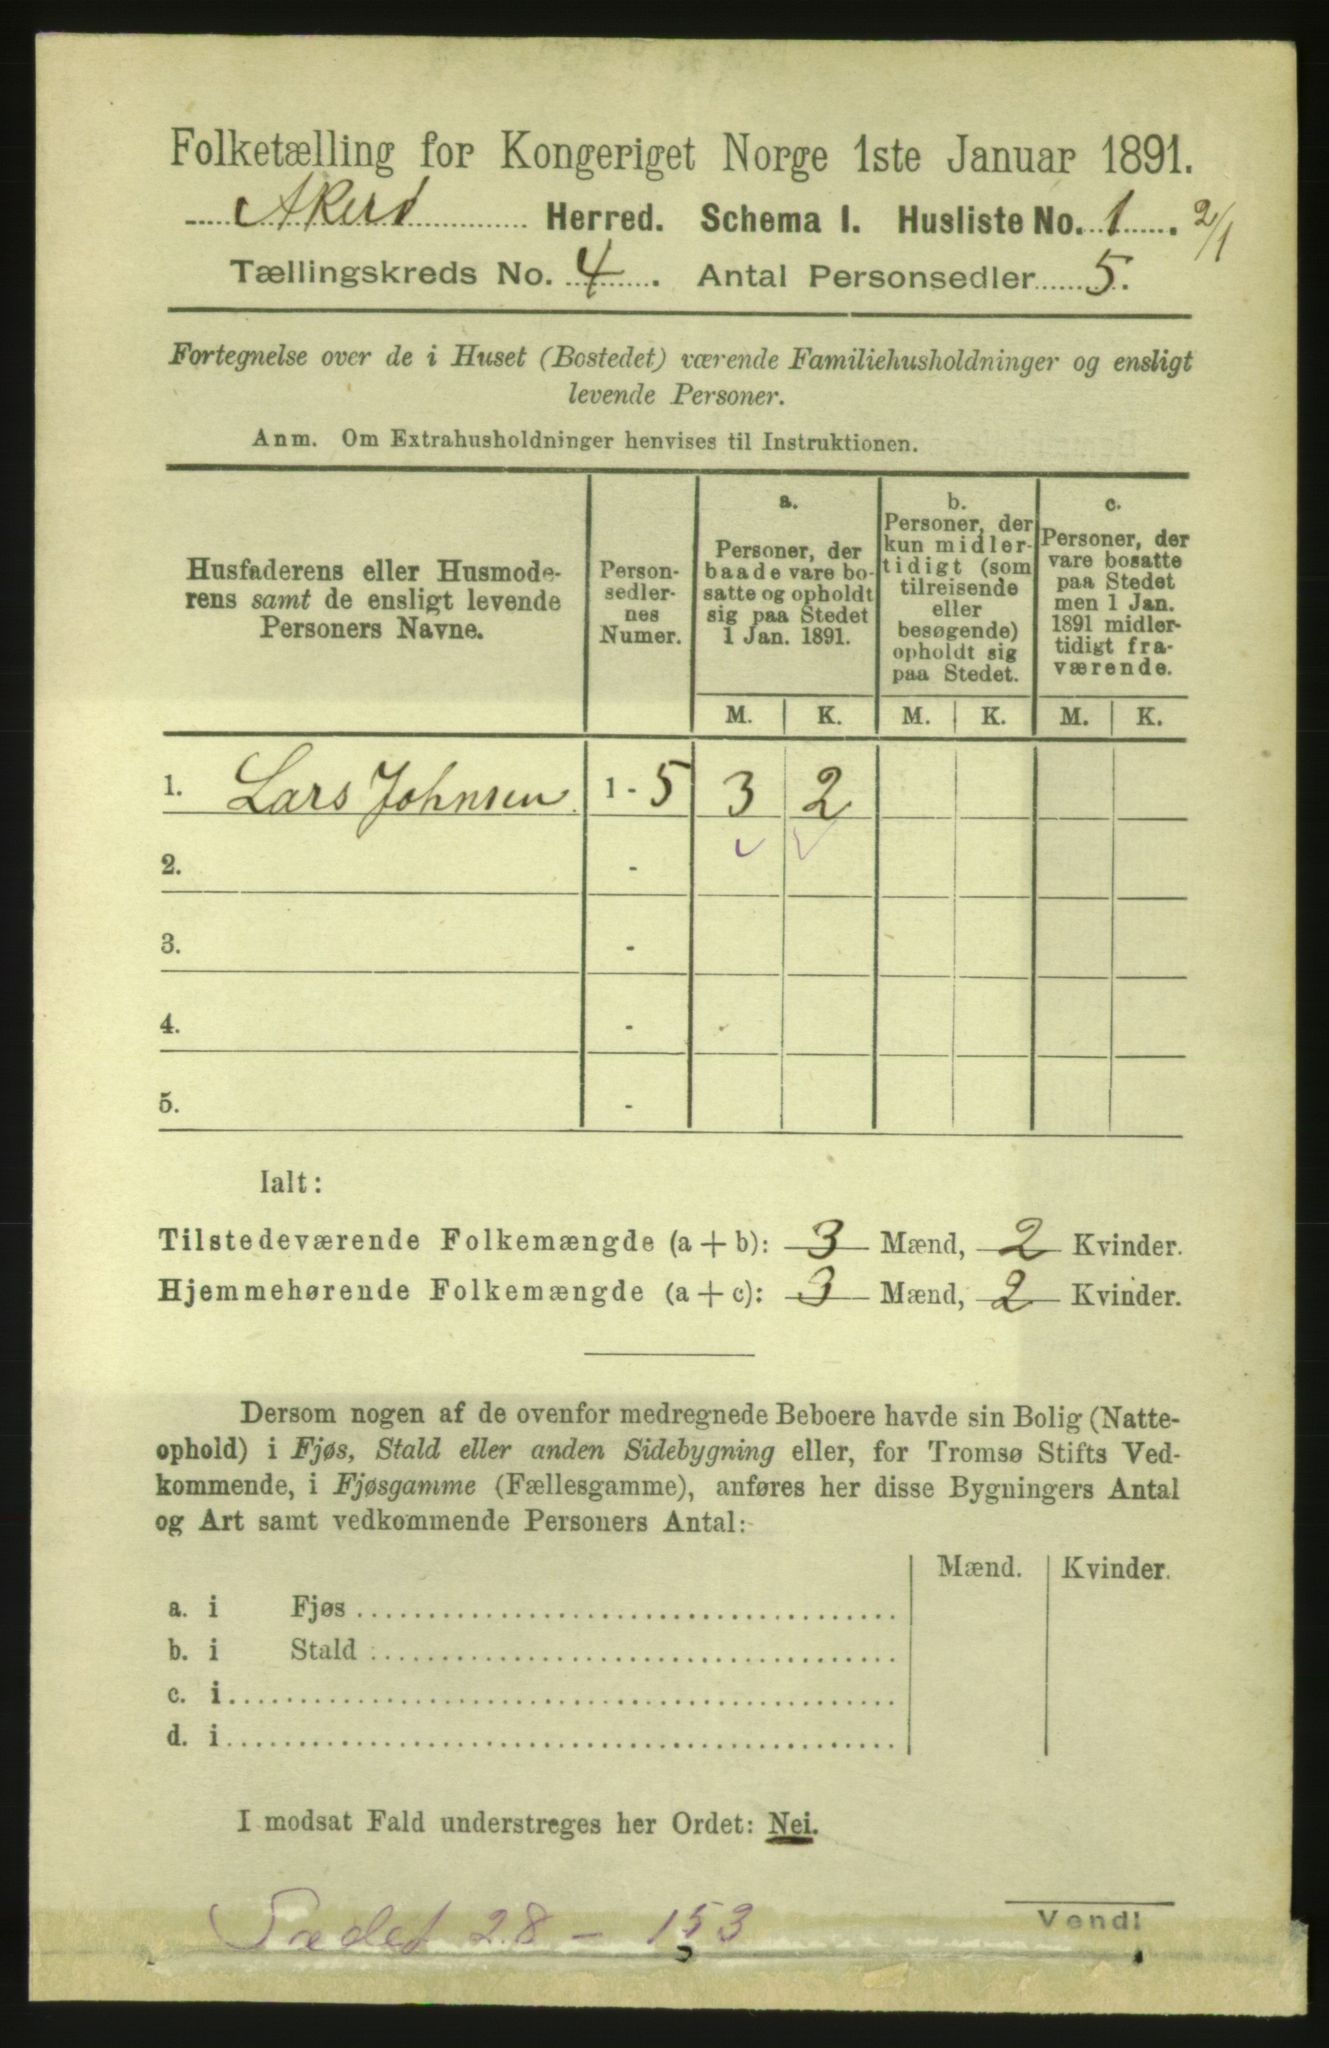 Folketælling for Kongeriget Norge 1ste Januar 1891.
Akerø Herred. Schema I. Husliste No. 1. 2/1
Tællingskreds No. 4. Antal Personsedler 5.
Fortegnelse over de i Huset (Bostedet) værende Familiehusholdninger og ensligt
levende Personer.
Anm. Om Extrahusholdninger henvises til Instruktionen.
Husfaderens eller Husmode-
rens samt de ensligt levende
Personers Navne.
Person-
sedler-
nes
Numer.
a.
Personer, der
baade vare bo-
satte og opholdt
sig paa Stedet
1 Jan. 1891.
b.
Personer, der
kun midler-
tidigt (som
tilreisende
eller
besøgende)
opholdt sig
paa Stedet.
c.
Personer, der
vare bosatte
paa Stedet
men 1 Jan.
1891 midler-
tidigt fra-
værende.
M. K. M. K. M. K.
1. Lars Johnsen 1 - 5 3 2
2. -
3. -
4. -
5. -
Ialt:
Tilstedeværende Folkemængde (a + b): 3 Mænd, 2 Kvinder.
Hjemmehørende Folkemængde (a + c): 3 Mænd, 2 Kvinder.
Dersom nogen af de ovenfor medregnede Beboere havde sin Bolig (Natte-
ophold) i Fjøs, Stald eller anden Sidebygning eller, for Tromsø Stifts Ved-
kommende, i Fjøsgamme (Fællesgamme), anføres her disse Bygningers Antal
og Art samt vedkommende Personers Antal:
Mænd. Kvinder.
a. i Fjøs
b. i Stald
c. i
d. i
I modsat Fald understreges her Ordet: Nei.
28 - 153
Vend!